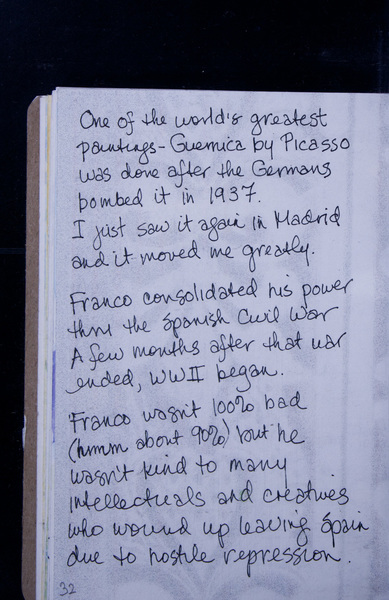 One of the world's greatest
paintings - Guernica by Picasso
was done after the Germans
bombed it in 1937.
I just saw it again in Madrid
and it moved me greatly.
Franco consolidated his power
thru the Spanish Civil War
A few months after that war
ended, WWII began.
Franco wasn't 100% bad
(hmmm about 90%) but he
wasn't kind to many
intellectuals and creatives
who wound up leaving Spain
due to hostile repression.
32